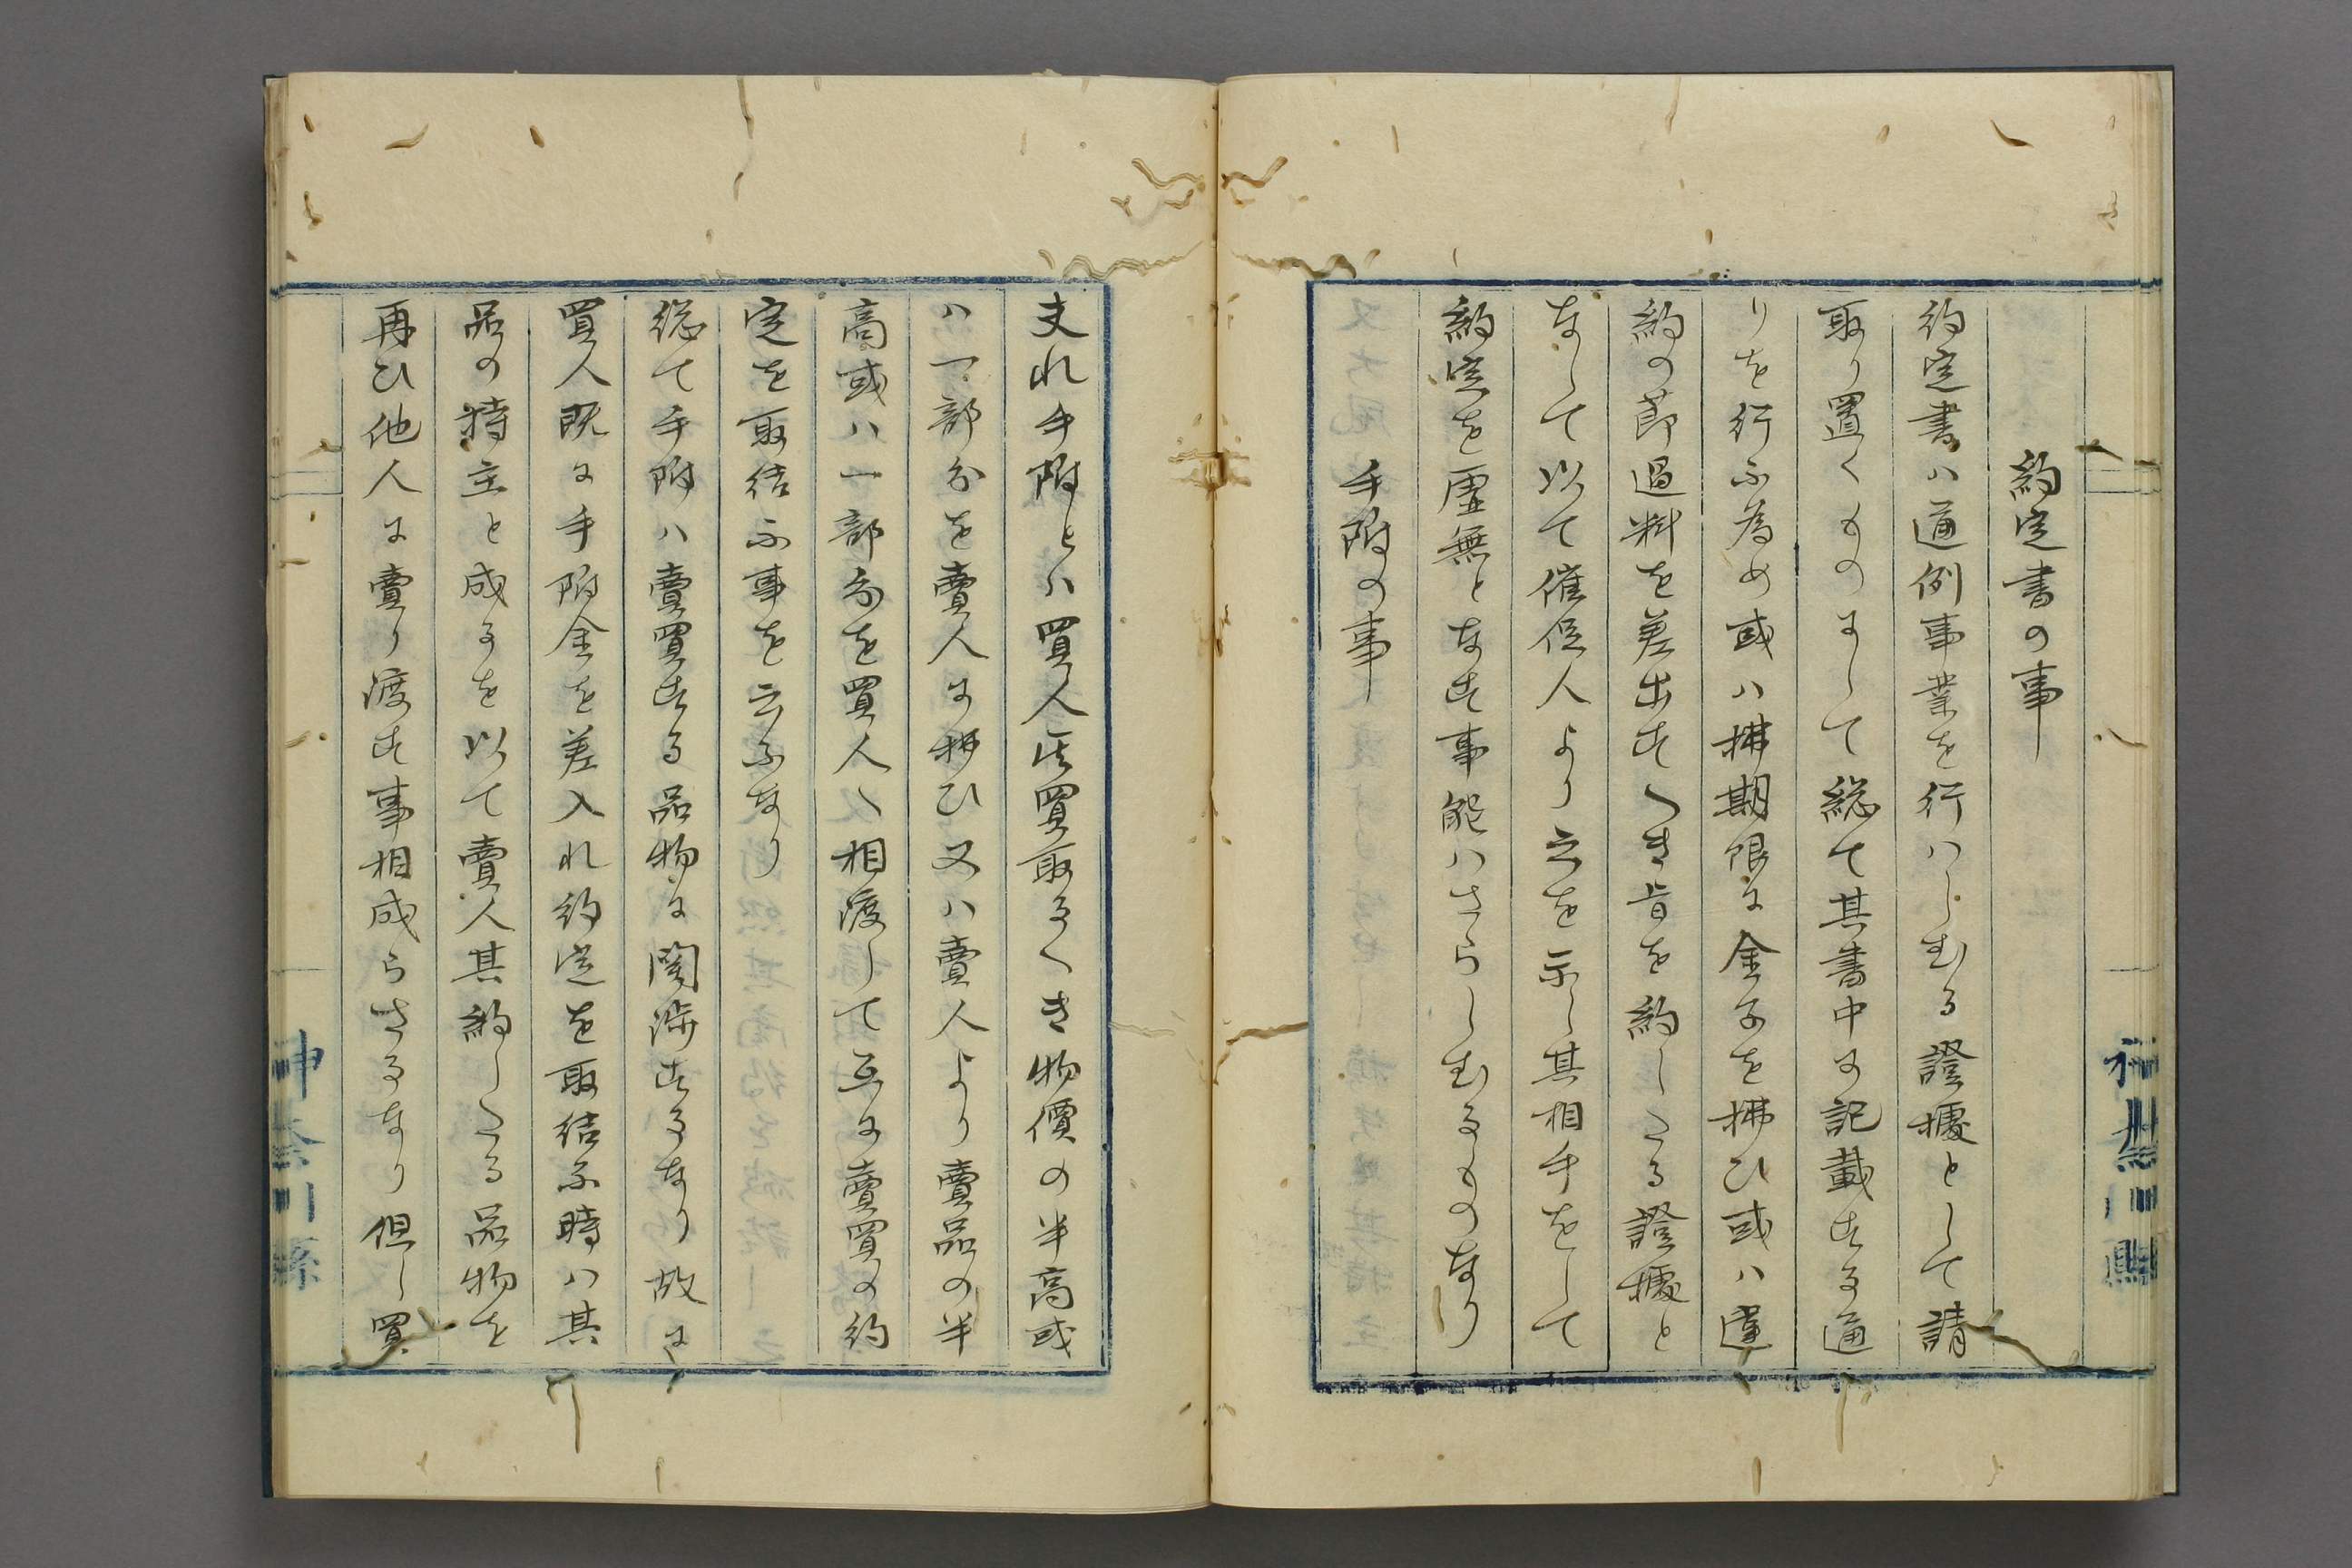 約定書の事
約定書ハ通例事業を行ハしむる證據として請
取り置くものにして総て其書中に記載する通
りを行ふ為め或ハ拂期限に金子を拂ひ或ハ違
約の節過料を差出すへき旨を約したる證據と
なして以て催促人より之を示し其相手をして
約定を虚無となす事能ハさらしむるものなり
手附の事
夫れ手附とハ買人其買取るへき物價の半高或
ハ一部分を賣人に拂ひ又ハ賣人より賣品の半
高或ハ一部分を買人へ相渡して互に賣買の約
定を取結ふ事を云ふなり
総て手附ハ賣買する品物に関渉するなり故に
買人既に手附金を差入れ約定を取結ふ時ハ其
品の持主と成るを以て賣人其約したる品物を
再ひ他人に賣り渡す事相成らさるなり但し買
神奈川縣